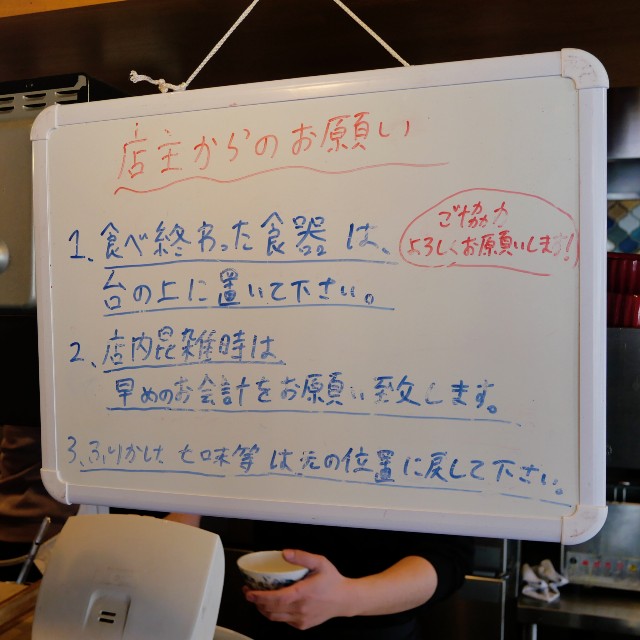 店主からのお願い
1、食べ終わった食器は、
台の上に置いて下さい。
ご協力
よろしくお願いします!
2、店内混雑時は、
早めのお会計をお願い致します。
3、ふりかけ 七味等は元の位置に戻して下さい。